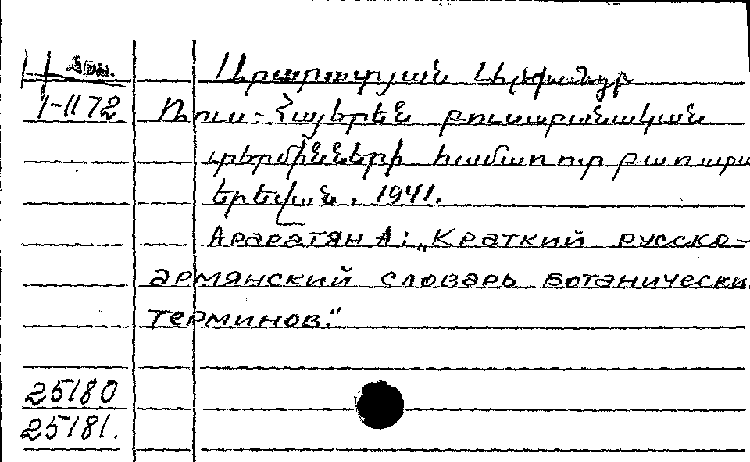 Հայ.
1-1172
Արարատյան Ալեքսանդր
Ռուս-Հայերեն բուսաբանական
տերմինների համառոտ բառարան
Երեվան. 1941.
Араратян А: „Краткий русско-
армянский словарь ботанически
терминов."
25180
25181.